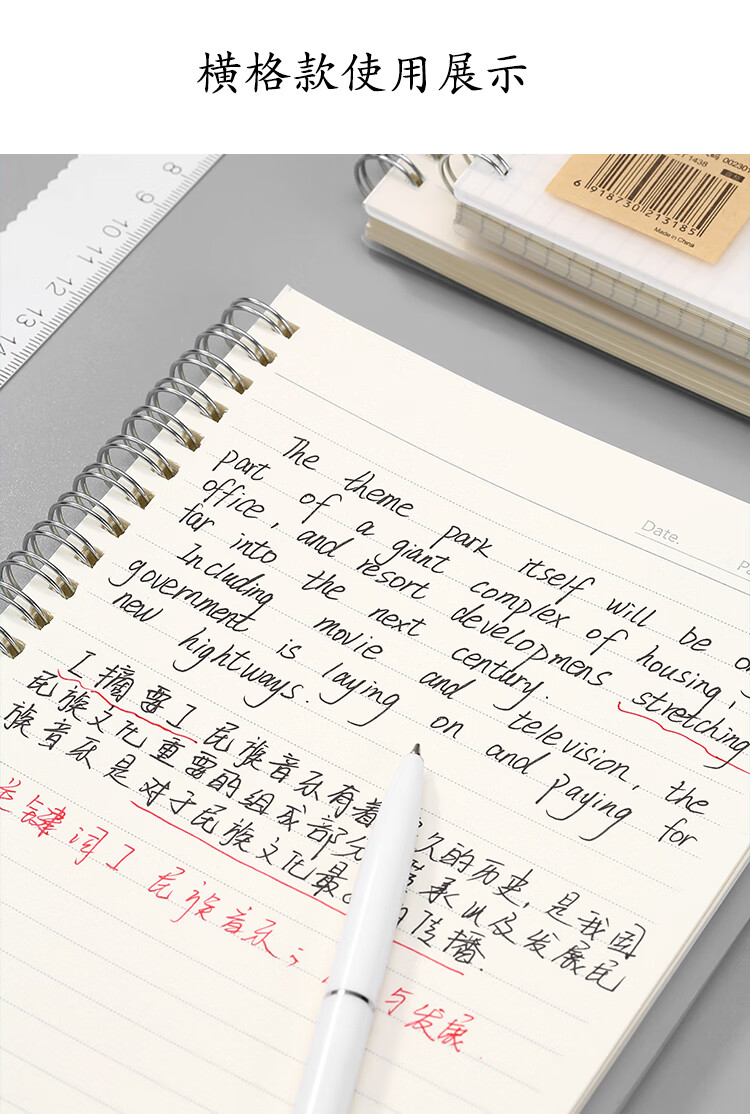 横格款使用展示
8 9 10 11 12 13 14
1438 002301
6 918730 213185
Made in China
Date.
The theme park itself will be
part of a giant complex of housing,
office, and resort developmens stretching
far into the next century.
Including movie and television, the
government is laying on and paying for
new hightways.
[摘要] 民族音乐有着 久的历史, 是我国
民族文化重要的组成部分 承以及发展民
族音乐是对于民族文化最 的传播.
关键词] 民族音乐; 与发展.